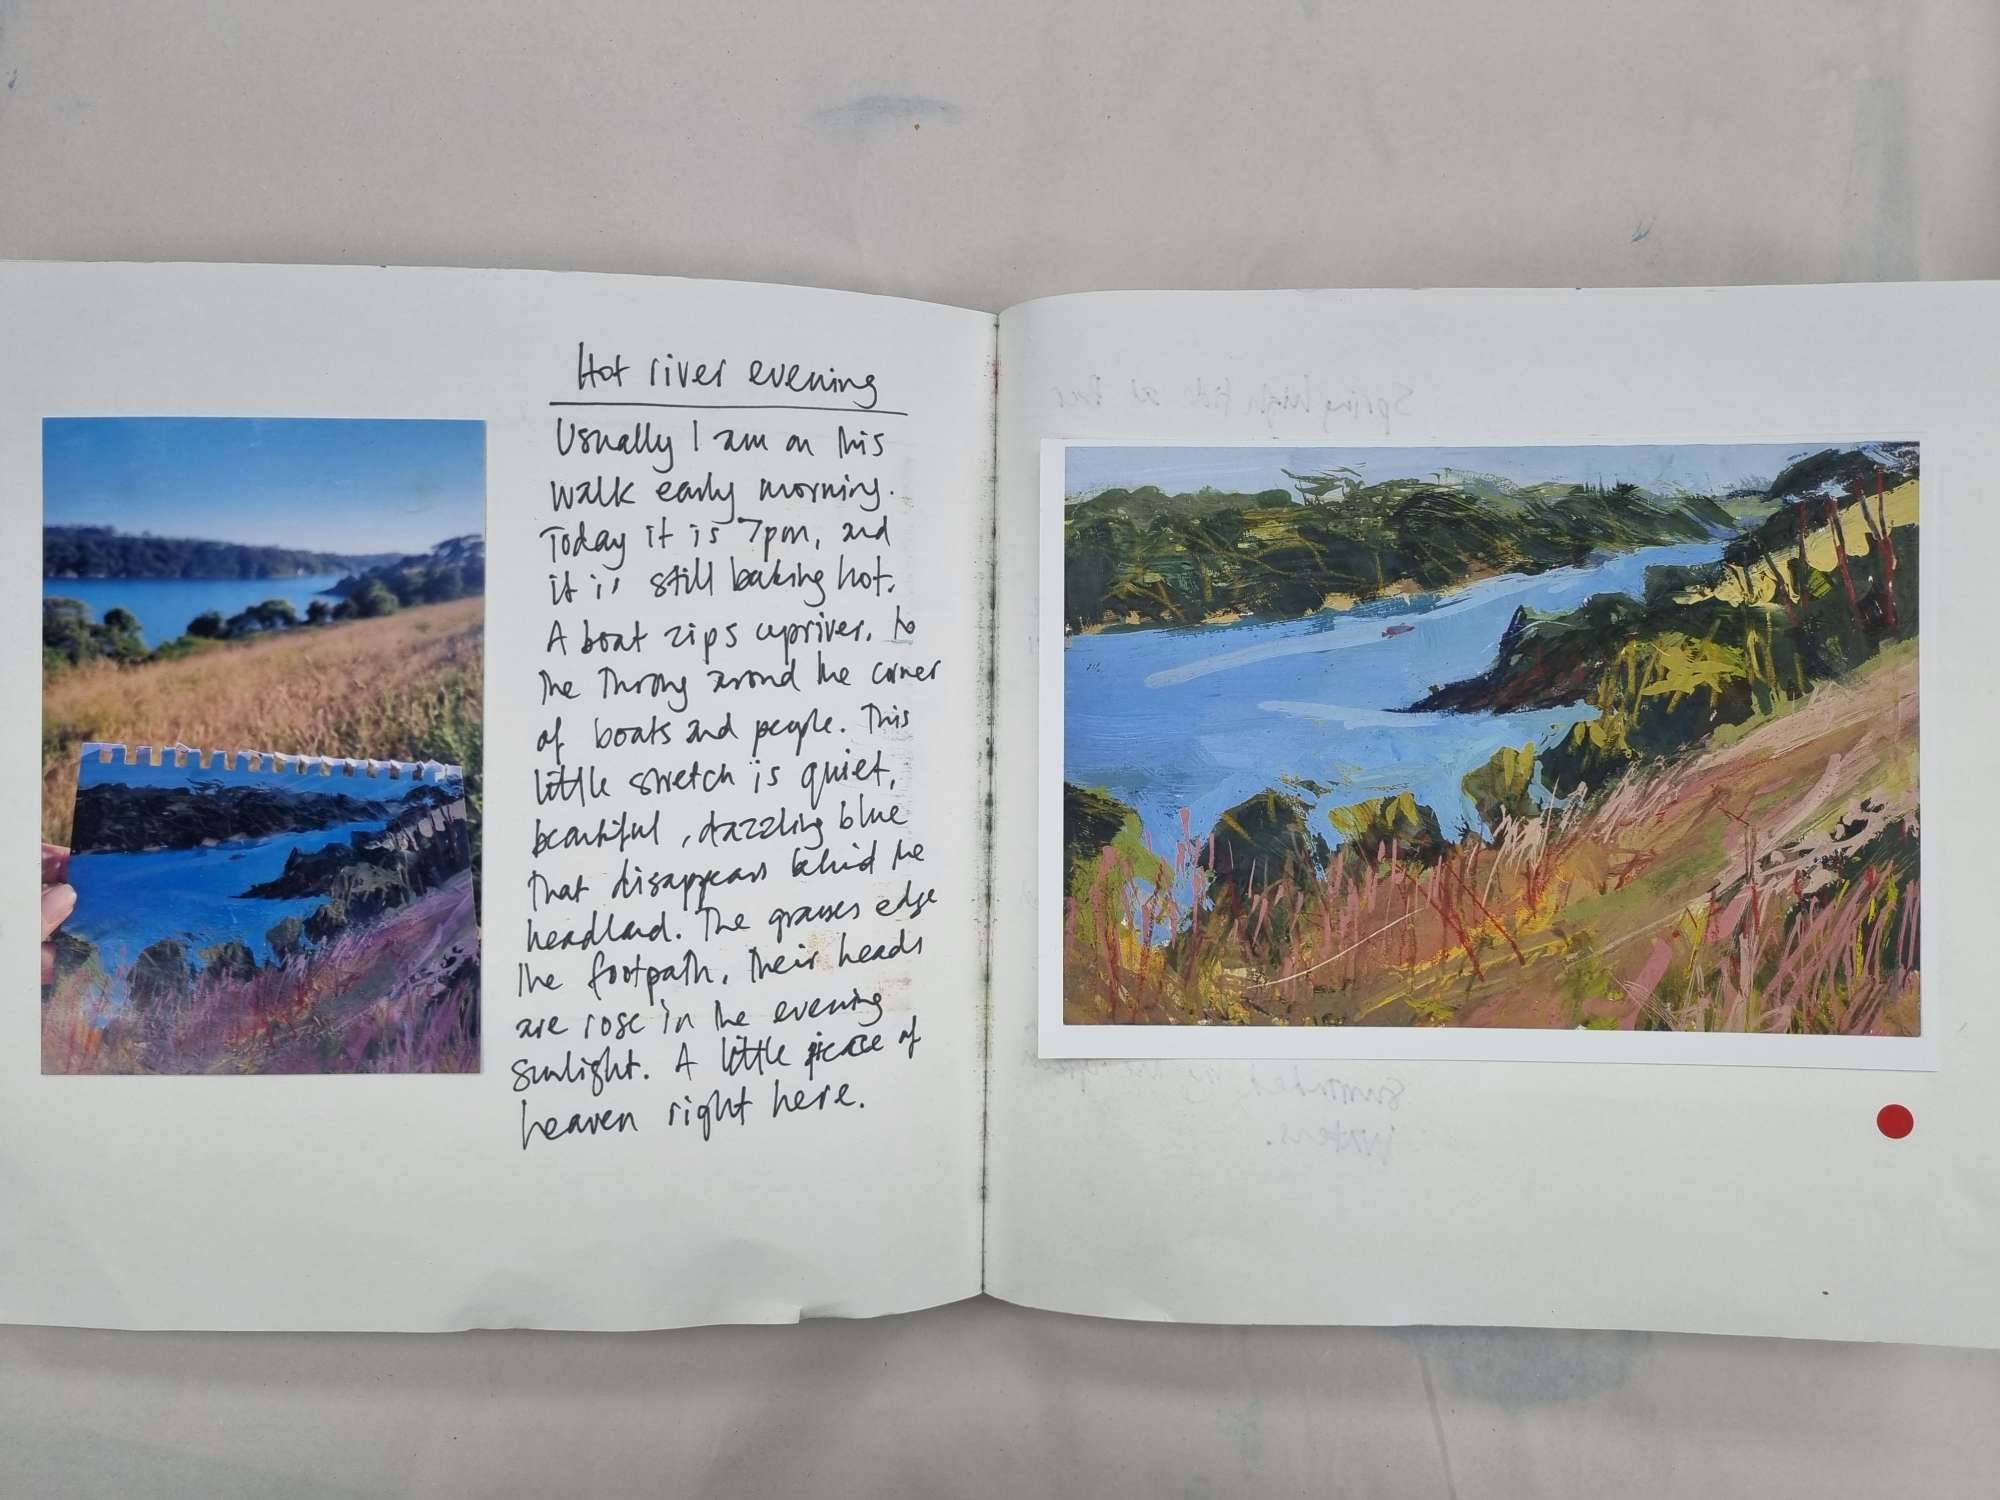 Hot river evening
Usually I am on this
walk early morning.
Today it is 7pm, and
it is still baking hot.
A boat zips upriver, to
the throng around the corner
of boats and people. This
little stretch is quiet,
beautiful, dazzling blue
that disappears behind the
headland. The grasses edge
the footpath, their heads
are rose in the evening
sunlight. A little piece of
heaven right here.
Spring high tide at
waters.